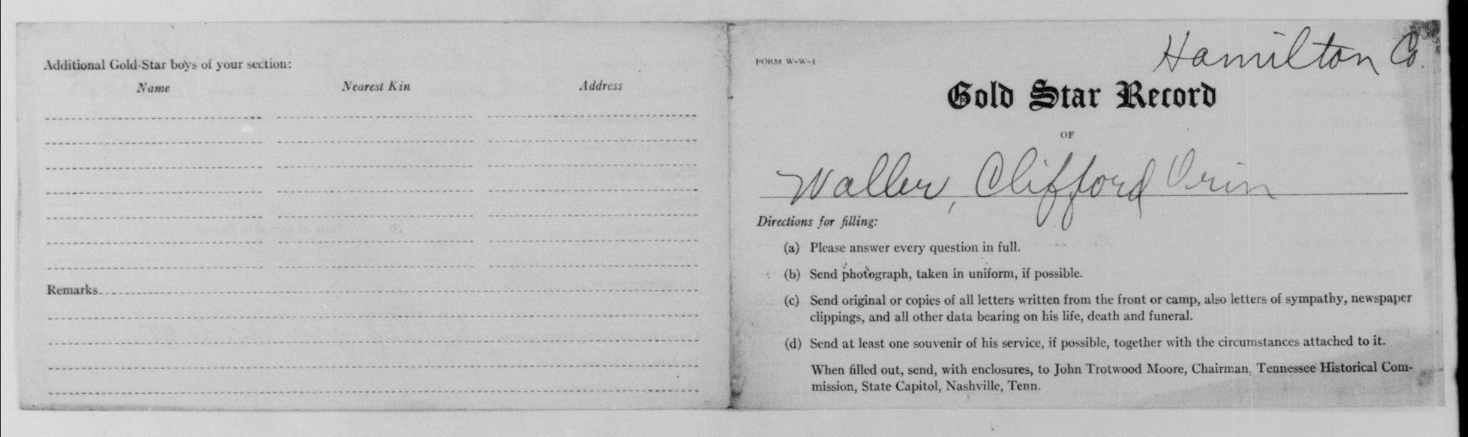 Additional Gold-Star boys of your section:
Name Nearest Kin Address
Remarks
FORM W-W-1
Hamilton Co.
Gold Star Record
OF
Waller, Clifford Orin
Directions for filling:
(a) Please answer every question in full.
(b) Send photograph, taken in uniform, if possible.
(c) Send original or copies of all letters written from the front or camp, also letters of sympathy, newspaper
clippings, and all other data bearing on his life, death and funeral.
(d) Send at least one souvenir of his service, if possible, together with the circumstances attached to it.
When filled out, send, with enclosures, to John Trotwood Moore, Chairman, Tennessee Historical Com-
mission, State Capitol, Nashville, Tenn.